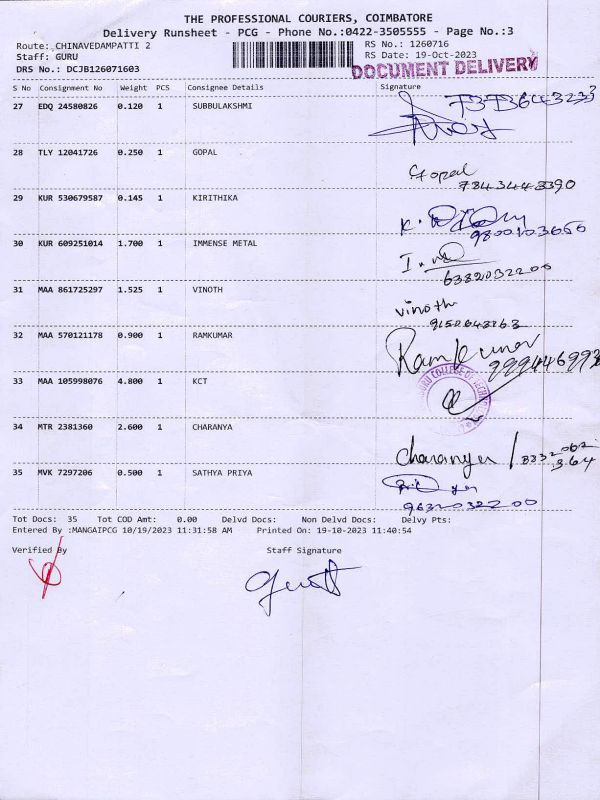 THE PROFESSIONAL COURIERS, COIMBATORE
Delivery Runsheet - PCG - Phone No.:0422-3505555 - Page No.:3
Route: CHINAVEDAMPATTI 2 RS No.: 1260716
Staff: GURU RS Date: 19-Oct-2023
DRS No.: DCJB126071603 DOCUMENT DELIVERY
S No Consignment No Weight PCS Consignee Details Signature
27 EDQ 24580826 0.120 1 SUBBULAKSHMI
28 TLY 12041726 0.250 1 GOPAL Gopal
7343448390
29 KUR 530679587 0.145 1 KIRITHIKA
9800103656
30 KUR 609251014 1.700 1 IMMENSE METAL
6382032200
31 MAA 861725297 1.525 1 VINOTH vinoth
32 MAA 570121178 0.900 1 RAMKUMAR Ramkumar
33 MAA 105998076 4.800 1 KCT
34 MTR 2381360 2.600 1 CHARANYA Charanya
35 MVK 7297206 0.500 1 SATHYA PRIYA
Tot Docs: 35 Tot COD Amt: 0.00 Delvd Docs: Non Delvd Docs: Delvy Pts:
Entered By :MANGAIPCG 10/19/2023 11:31:58 AM Printed On: 19-10-2023 11:40:54
Verified By Staff Signature